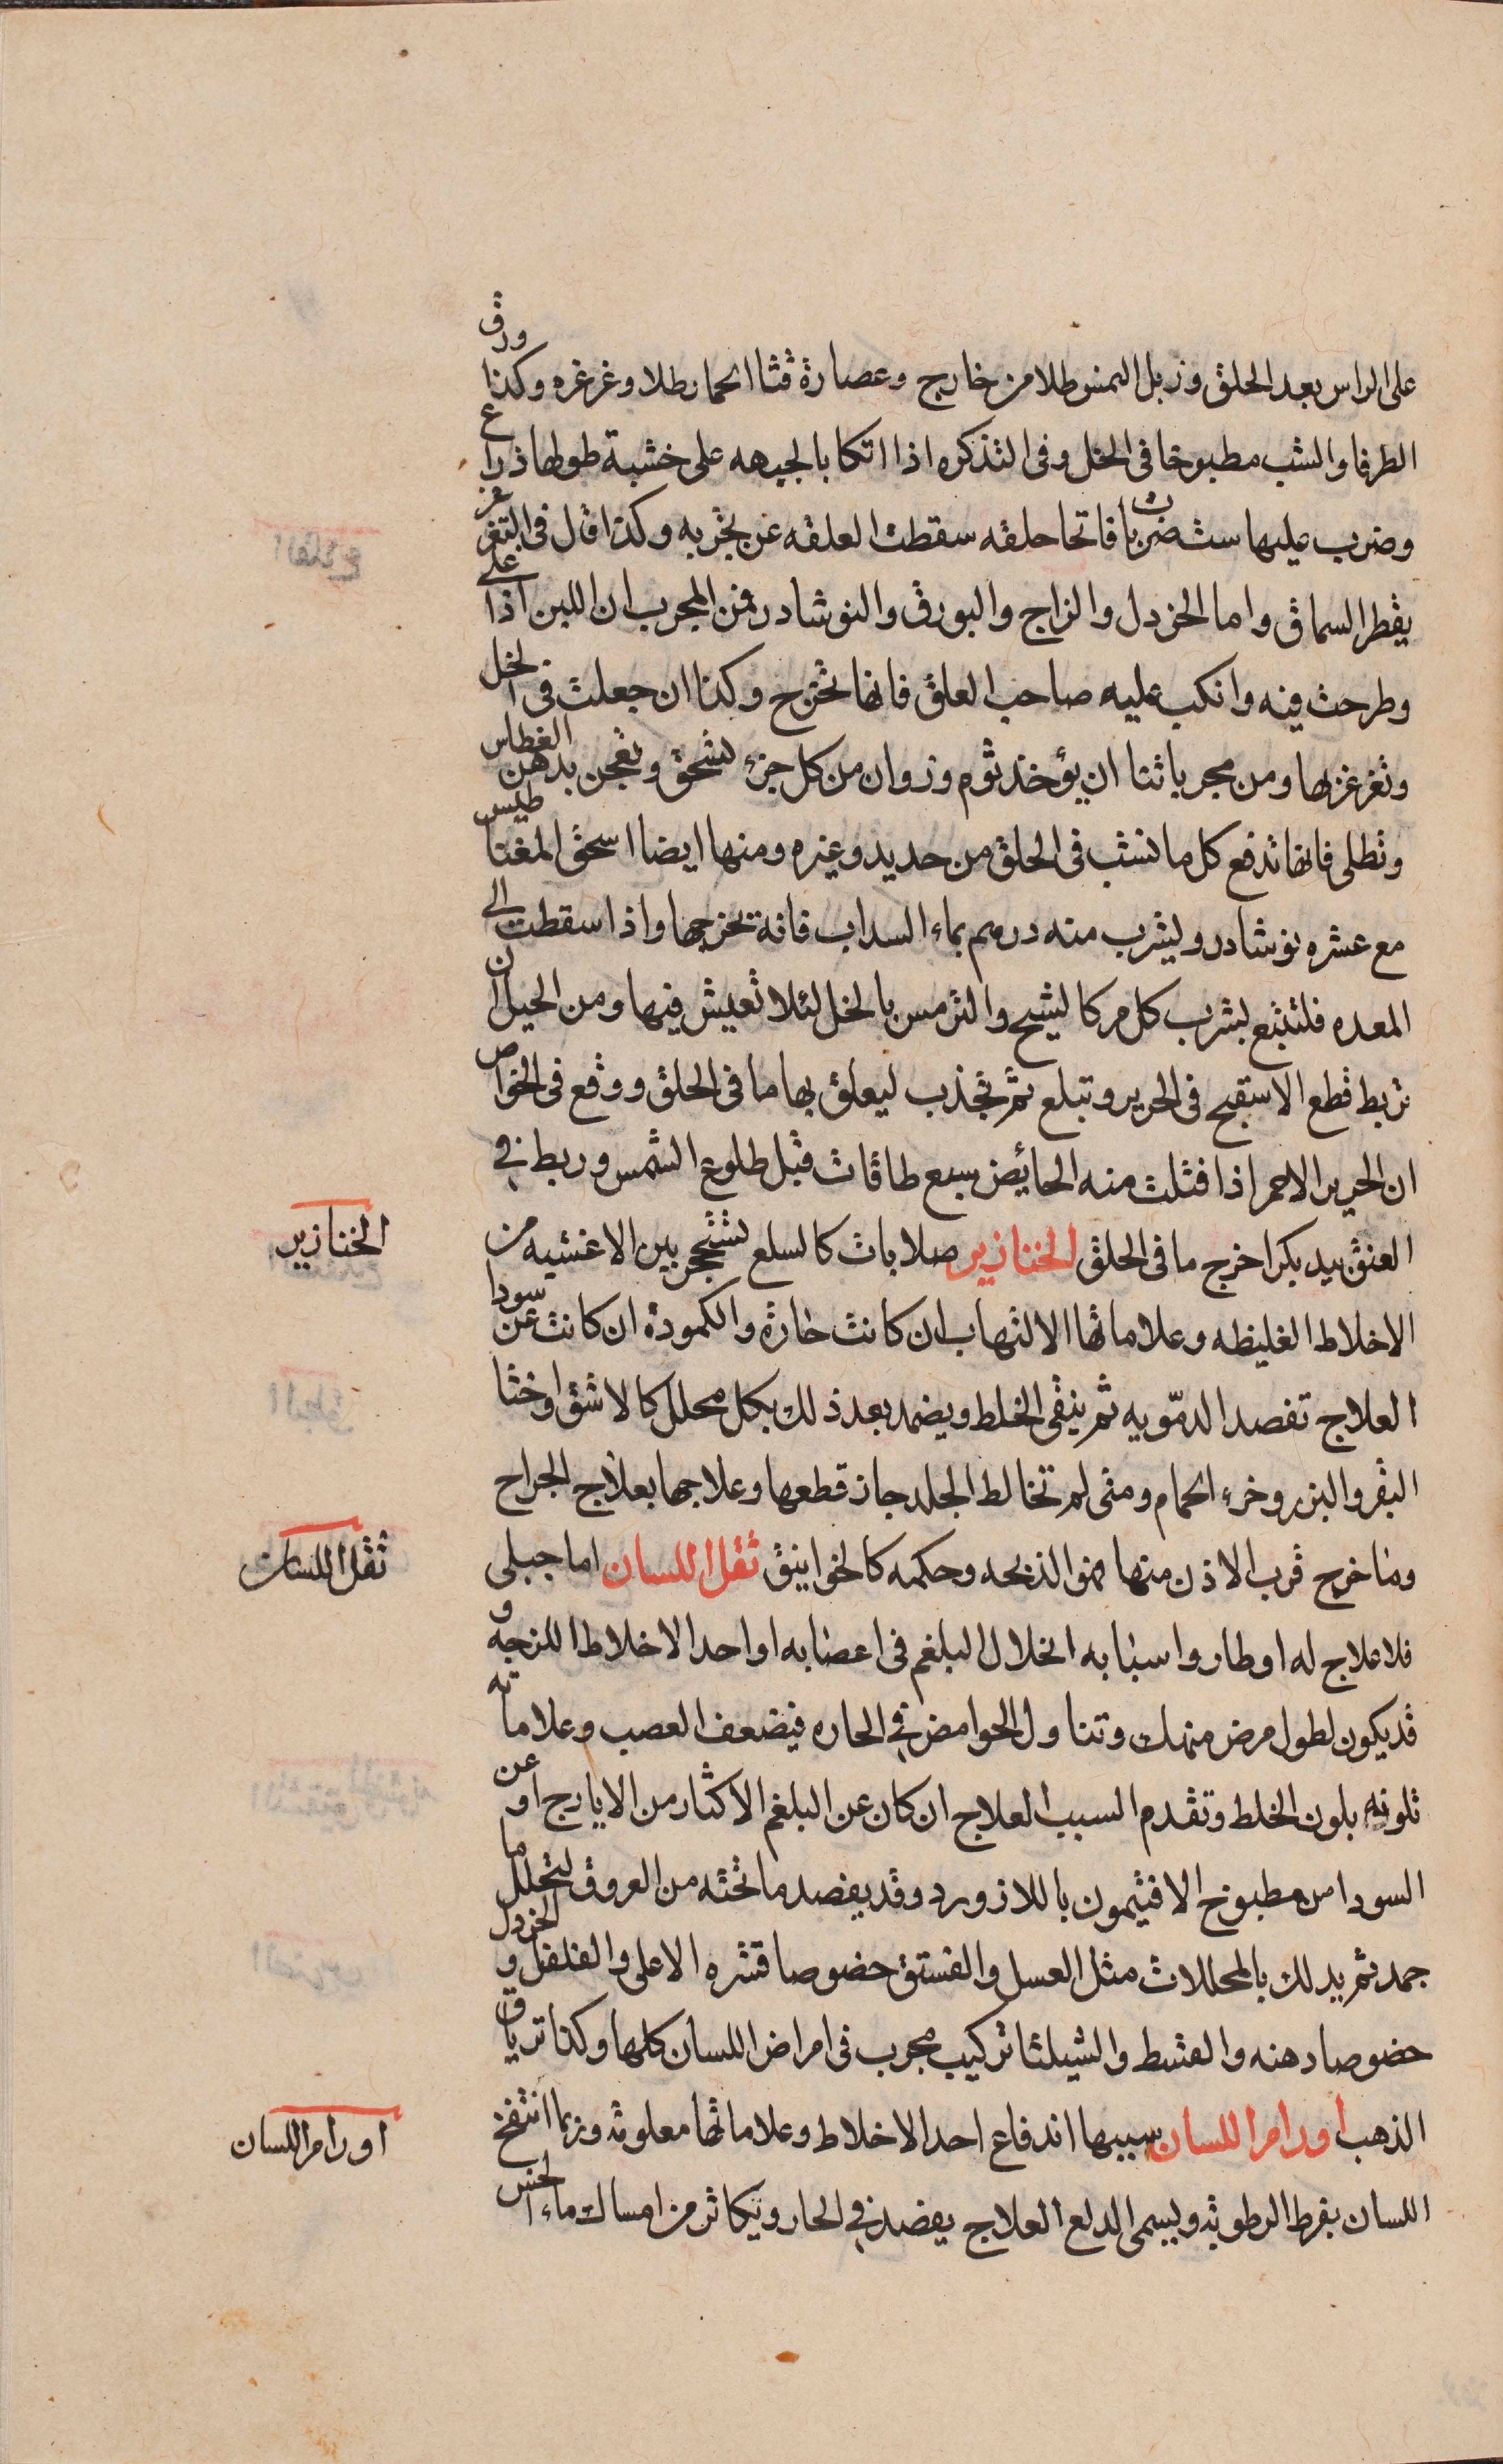 على الراس بعد الحلق وزبل النمس طلا من خارج وعصارة قثا الحمار طلا وغرغره وكذا ورق
الطرفا والشب مطبوخا فى الخل وفى التذكره اذا اتكا بالجبهه على خشبة طولها ذراع
وضرب عليها ست ضربات فاتحا حلقه سقطت العلقه عن تجربه وكذا قال فى التغرغر
بقطر السماق واما الخردل والزاج والبورق والنوشادر فمن المجرب ان اللبن اذا على
وطرحت فيه وانكب عليه صاحب العلق فانها تخرج وكذا ان جعلت فى الخل
وتغرغر بها ومن مجرباتنا ان يؤخذ ثوم وزوان من كل جزء تسحق وتعجن بدهن الغطاس
وتطلى فانها تدفع كل ما نشب فى الحلق من حديد وغيره ومنها ايضا اسحق المغناطيس
مع عشره نوشادر وليشرب منه درهم بماء السداب فانه يخرجها واذا سقطت الى
المعده فلتتبع بشرب كل مر كالشيح والترمس بالخل لئلا تعيش فيها ومن الحيل ان
تربط قطع الاسفنج فى الحرير وتبلع ثم تجذب ليعلق بها ما فى الحلق ووقع فى الخواص
ان الحرير الاحمر اذا فتلت منه الحائض سبع طاقات قبل طلوع الشمس وربط فى
العنق بيد بكر اخرج ما فى الحلق الخنازير صلابات كالسلع تتحجر بين الاغشيه من
الخنازير
الاخلاط الغليظه وعلاماتها الالتهاب ان كانت حارة والكمودة ان كانت عن سودا
العلاج تفصد الدمّويه ثم ينقى الخلط ويضمد بعد ذلك بكل محلل كالاشق واخثا
البقر والبزر وخرء الحمام ومتى لم تخالط الجلد جاز قطعها وعلاجها بعلاج الجراح
وما خرج قرب الاذن منها فهو الذبحه وحكمه كالخوانيق ثقل اللسان اما جبلى
ثقل اللسان
فلا علاج له او طار واسبابه انحلال البلغم فى اعصابه او احد الاخلاط اللزجه و
قد يكون لطول مرض منهك وتناول الحوامض فى الحاره فيضعف العصب وعلاماته
تلونه بلون الخلط وتقدم السبب العلاج ان كان عن البلغم الاكثار من الايارج او عن
السودا من مطبوخ الافتيمون باللازورد وقد يفصد ما تحته من العروق ليتحلل ما
جمد ثم يدلك بالمحللات مثل العسل والفستق خصوصا قشره الاعلى والفلفل والخردل
خصوصا دهنه والقسط والشيلثا تركيب مجرب فى امراض اللسان كلها وكذا ترياق
الذهب اورام اللسان سببها اندفاع احد الاخلاط وعلاماتها معلومه وربما انتفخ
اورام اللسان
اللسان بفرط الرطوبه ويسمى الدلع العلاج يفصد فى الحار ويكاثر من امساك ماء الخس